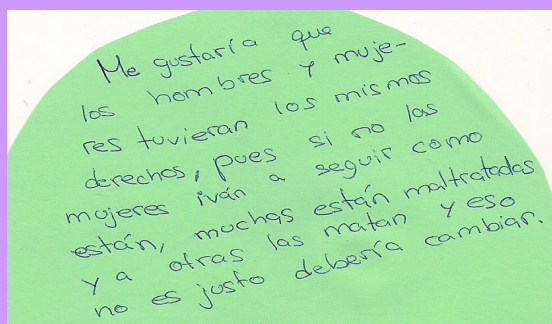 Me gustaría que
los hombres y muje-
res tuvieran los mismos
derechos, pues si no las
mujeres iván a seguir como
están, muchas están maltratadas
y a otras las matan y eso
no es justo debería cambiar.